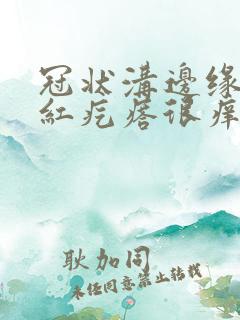 冠状溝邊缘
紅疙瘩很痒
耿加同
未经同意禁止转载